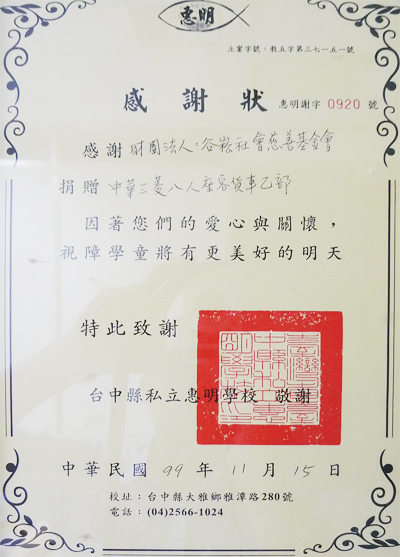 惠明
立案字號:教五字第三七一五一號
感謝狀 惠明謝字 0920 號
感謝 財團法人:谷崧社會慈善基金會
捐贈 中華三菱八人座客貨車乙部
因著您們的愛心與關懷,
視障學童將有更美好的明天
特此致謝
台中縣私立惠明學校 敬謝
中華民國 99 年 11 月 15 日
校址:台中縣大雅鄉雅潭路280號
電話:(04)2566-1024